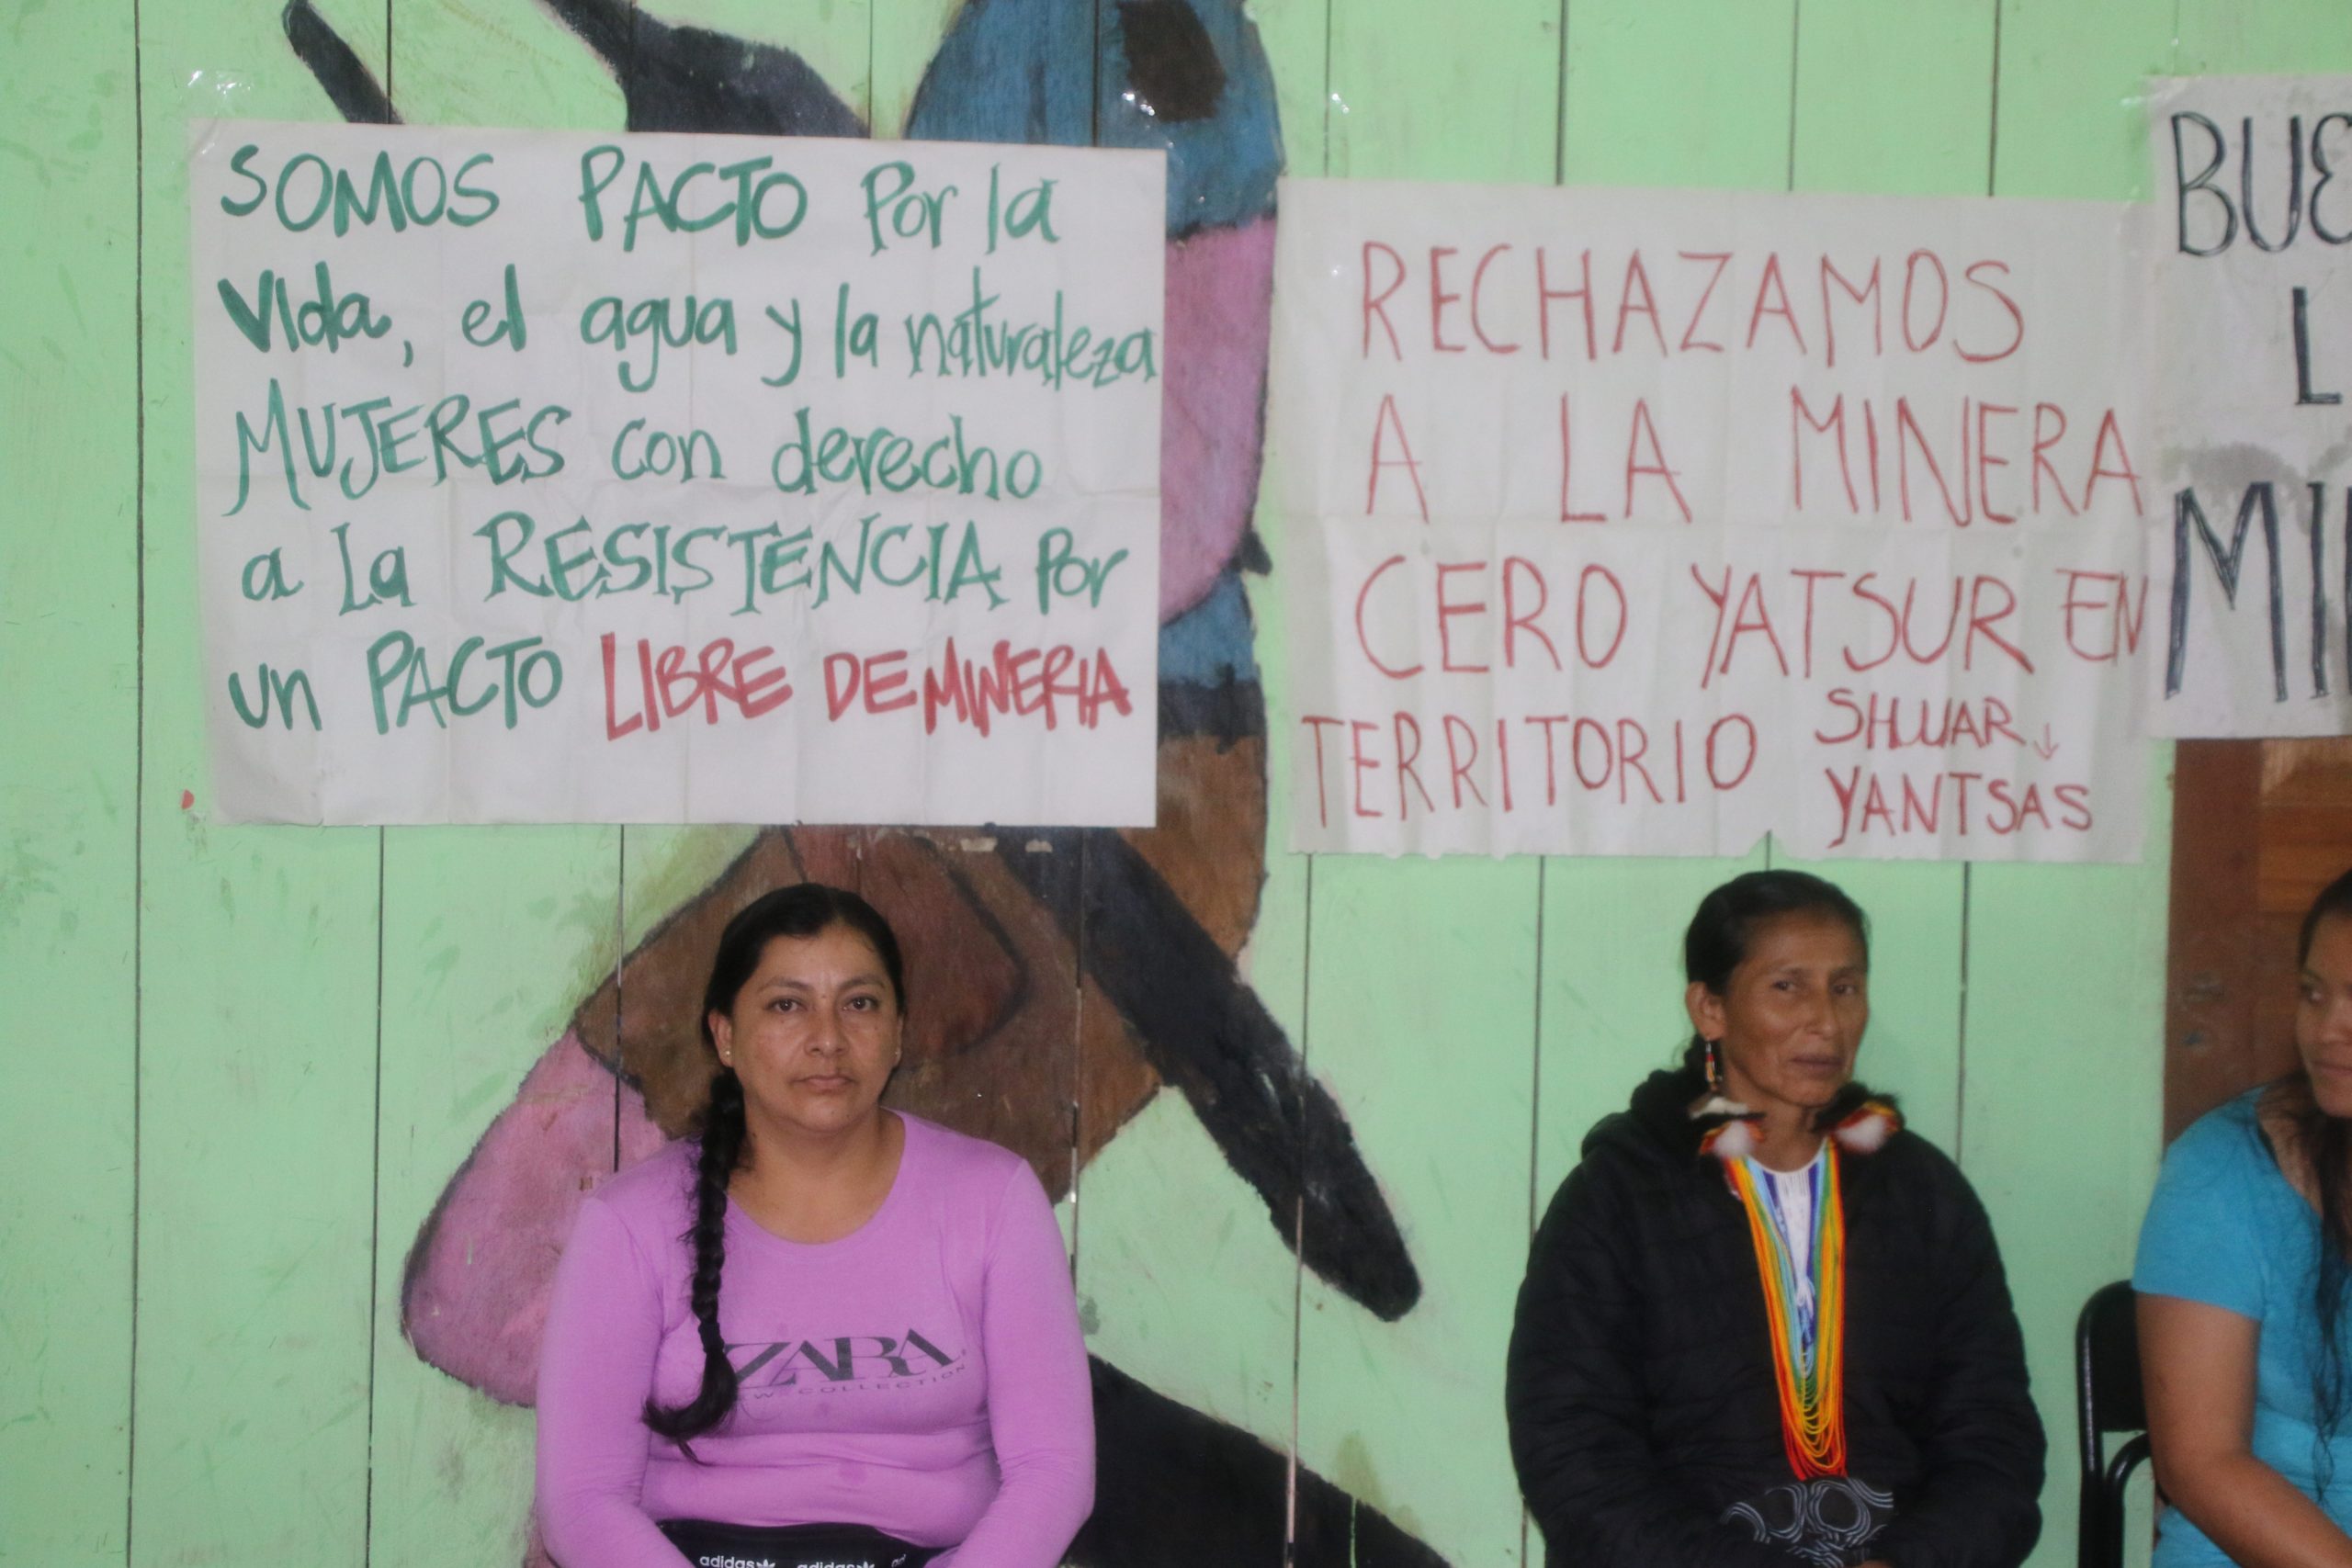 SOMOS PACTO Por la
Vida, el agua y la naturaleza
MUJERES con derecho
a La RESISTENCIA Por
un PACTO LIBRE DE MINERIA
RECHAZAMOS
A LA MINERA
CERO YATSUR EN
TERRITORIO SHUAR ↓
YANTSAS
BUE
L
MI
ZARA
COLLECTION
adidas adidas